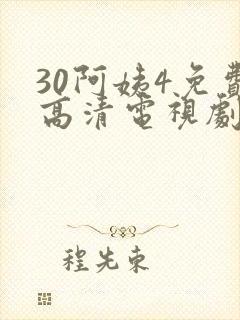 30阿姨4免費
高清電視劇
程先東